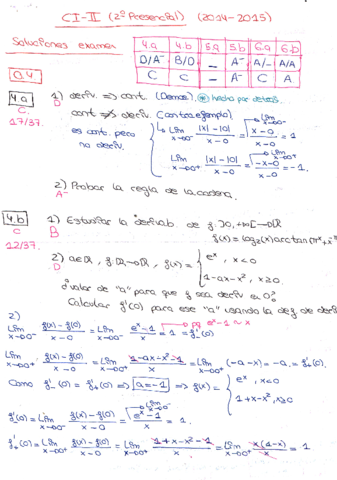 CI-II (2º Presencial) (2014-2015)
Soluciones examen
4.a 4.b 5.a 5.b 6.a 6.b
D/A⁻ B/D – A⁻ A/– A/A
C C – A⁻ C A
4.a 1) deriv. ⇒ cont. (Demos.)
C D cont ⇏ deriv. (contraejemplo)
17/37. es cont. pero no deriv.
Lím x→0⁻ |x|-|0| / x-0 = x-0 / x-0 = 1
Lím x→0⁺ |x|-|0| / x-0 = -x-0 / x-0 = -1.
2) Probar la regla de la cadena.
A⁻
4.b 1) Estudiar la derivab. de f: ]0,+∞[→ℝ
C B f(x) = log₂(x) arctan(πˣ + x⁻
12/37. 2) a∈ℝ, f: ℝ→ℝ, f(x) = { eˣ, x<0
D 1-ax-x², x≥0.
¿valor de "a" para que f sea deriv en 0?
Calcular f'(0) para ese "a" usando la def de deriv
2)
Lím x→0⁻ f(x)-f(0) / x-0 = Lím x→0⁻ eˣ-1 / x = 1 = f'₋(0) pq eˣ-1 ~ x
Lím x→0⁺ f(x)-f(0) / x-0 = Lím x→0⁺ 1-ax-x²-1 / x = Lím x→0⁺ (-a-x) = -a = f'₊(0).
Como f'₋(0) = f'₊(0) ⇒ a=-1 ⇒ f(x) = { eˣ, x<0
1+x-x², x≥0
f'₋(0) = Lím x→0⁻ f(x)-f(0) / x-0 = eˣ-1 / x = 1.
f'₊(0) = Lím x→0⁺ f(x)-f(0) / x-0 = Lím x→0⁺ 1+x-x²-1 / x = Lím x→0⁺ x(1-x) / x = 1